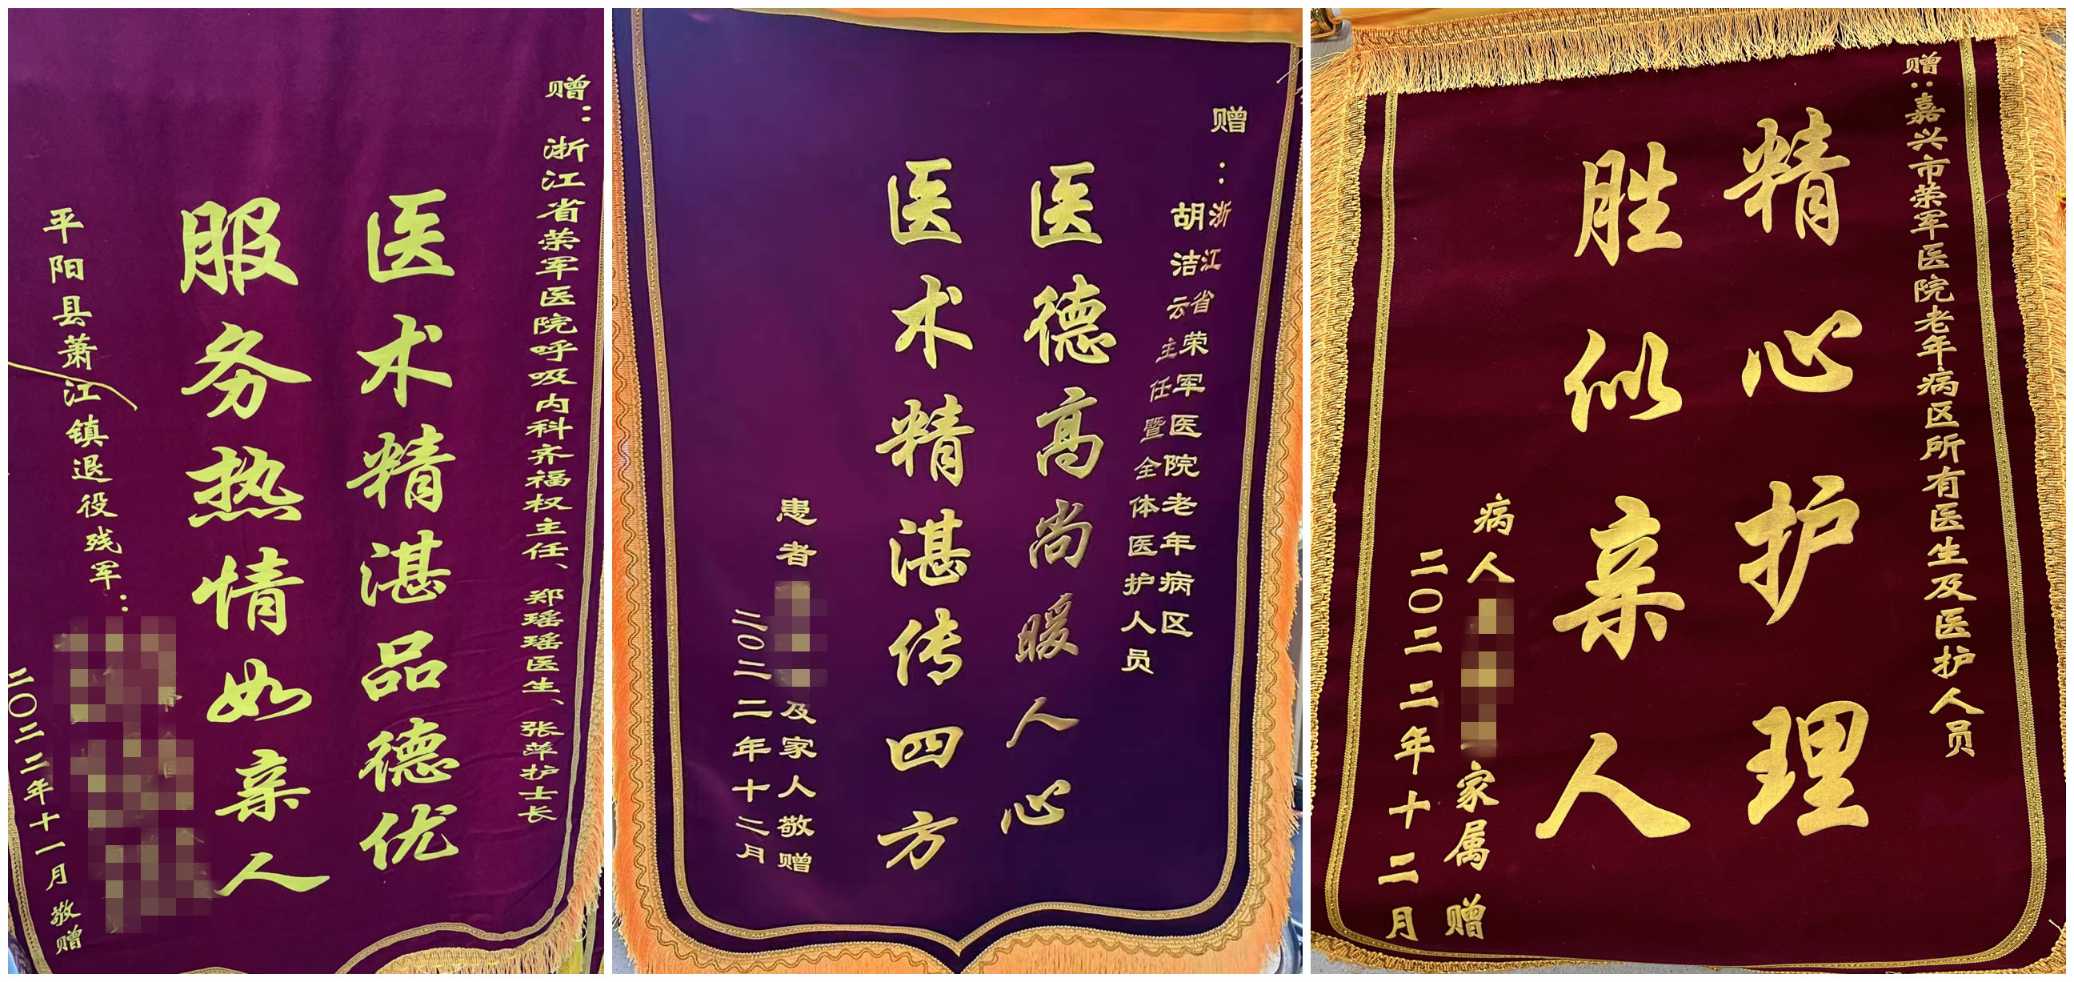 赠：浙江省荣军医院呼吸内科齐福权主任、郑瑶瑶医生、张萍护士长
医术精湛品德优
服务热情如亲人
平阳县萧江镇退役残军：
二〇二二年十一月敬赠
赠：浙江省荣军医院老年病区
胡洁云主任暨全体医护人员
医德高尚暖人心
医术精湛传四方
患者
及家人敬赠
二〇二二年十二月
赠：嘉兴市荣军医院老年病区所有医生及医护人员
精心护理
胜似亲人
病人
家属赠
二〇二二年十二月